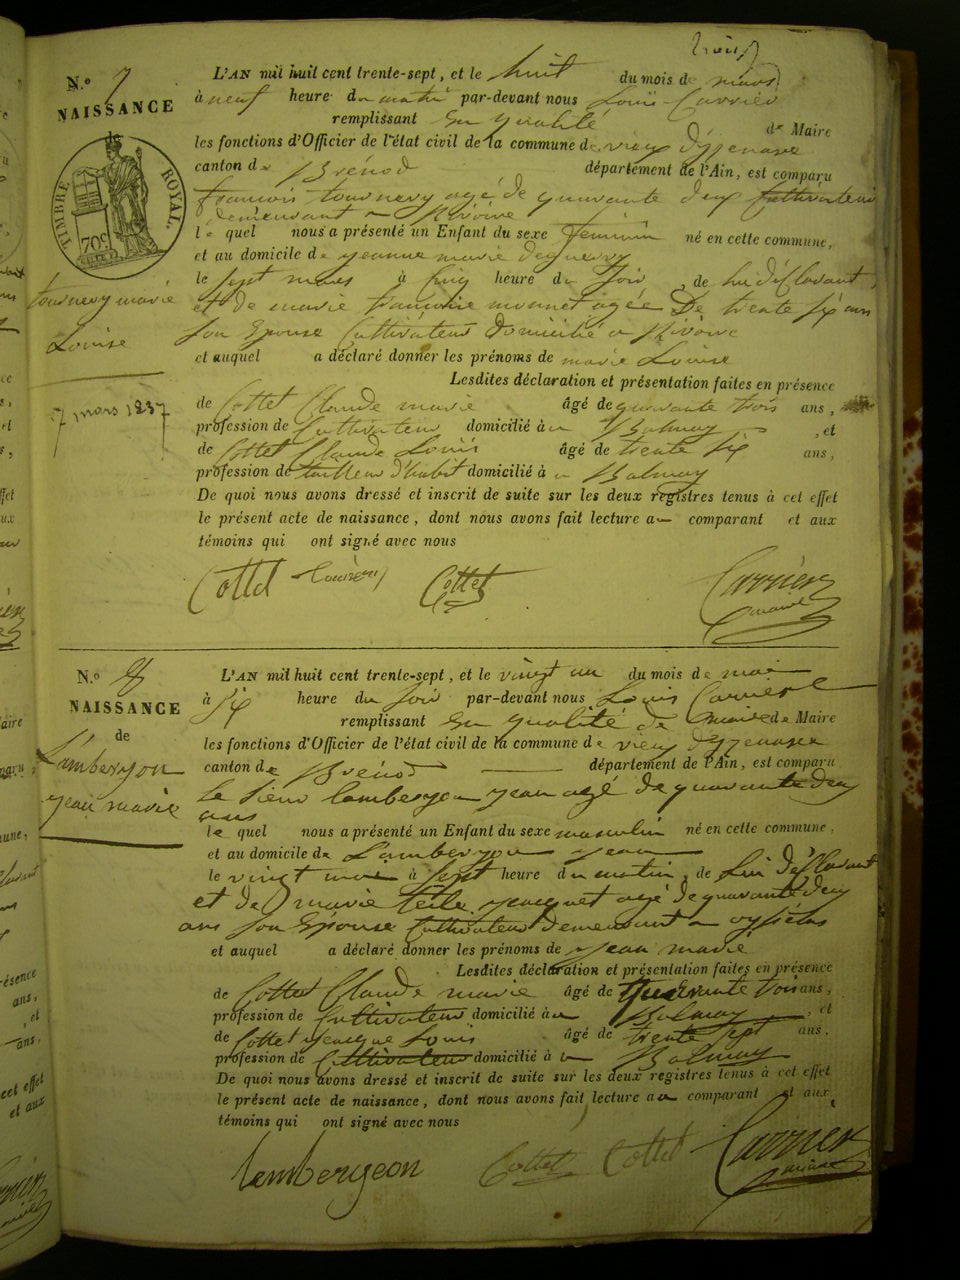 trois
N.º 7
NAISSANCE
TIMBRE ROYAL
70c
L'AN mil huit cent trente-sept, et le huit du mois de mars
à neuf heure du matin par-devant nous Louis Carrier
remplissant en qualité de Maire
les fonctions d'Officier de l'état civil de la commune de vieux d'yzenave
canton de Brénod département de l'Ain, est comparu
françois tournery agé de quarante deux Cultivateur
demeurant a
le quel nous a présenté un Enfant du sexe feminin né en cette commune,
et au domicile de jeanne marie
le sept mars à cinq heure du soir, de lui déclarant,
et de marie françoise monnet agée De trente six ans
son Epouse Cultivateur domicilié a
et auquel a déclaré donner les prénoms de marie Louise
tournery marie
Louise
7 mars 1837
Lesdites déclaration et présentation faites en présence
de Cottet Claude marie âgé de quarante trois ans,
profession de Cultivateur domicilié à Balmay, et
de Cottet Claude Louis âgé de trente six ans,
profession de tailleur d'habit domicilié à Balmay
De quoi nous avons dressé et inscrit de suite sur les deux registres tenus à cet effet
le présent acte de naissance, dont nous avons fait lecture au comparant et aux
témoins qui ont signé avec nous
Cottet Cottet Carrier
maire
N.º 8
NAISSANCE
de
Lamberjon
jean marie
L'AN mil huit cent trente-sept, et le vingt un du mois de mai
à six heure du soir par-devant nous Louis Carrier
remplissant en qualité de maire de Maire
les fonctions d'Officier de l'état civil de la commune de vieux d'yzenave
canton de Brénod département de l'Ain, est comparu
le sieur lamberjon jean agé de quarante deux
ans
le quel nous a présenté un Enfant du sexe masculin né en cette commune,
et au domicile de Lamberjon jean
le vingt mai à sept heure du matin, de lui déclarant
et de marie jacquet agé de quarante deux
ans son Epouse Cultivateur demeurant a
et auquel a déclaré donner les prénoms de jean marie
Lesdites déclaration et présentation faites en présence
de Cottet Claude marie âgé de quarante trois ans,
profession de Cultivateur domicilié à Balmay, et
de Cottet jacque Louis âgé de trente sept ans,
profession de Cultivateur domicilié à Balmay
De quoi nous avons dressé et inscrit de suite sur les deux registres tenus à cet effet
le présent acte de naissance, dont nous avons fait lecture au comparant et aux
témoins qui ont signé avec nous
lamberjeon Cottet Cottet Carrier
maire